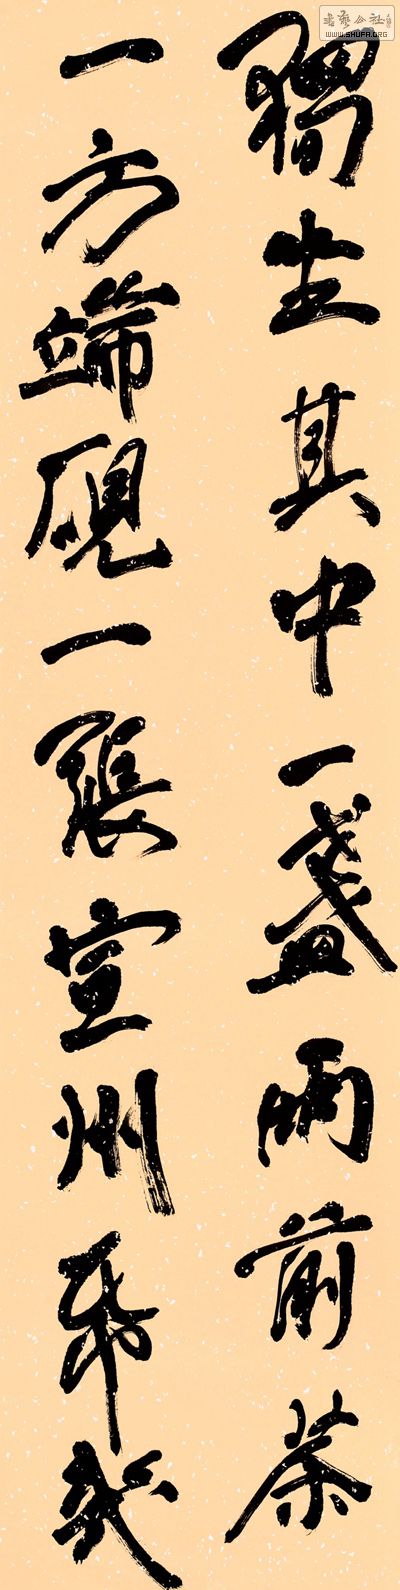 書藝公社
WWW.SHUFA.ORG
獨坐其中一盞雨前茶
一方端硯一張宣州帋幾